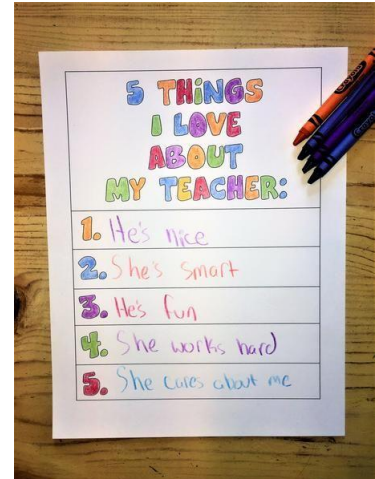 5 THiNGS
I LOVE
ABOUT
MY TEACHER:
1. He's nice
2. She's smart
3. He's fun
4. She works hard
5. She cares about me